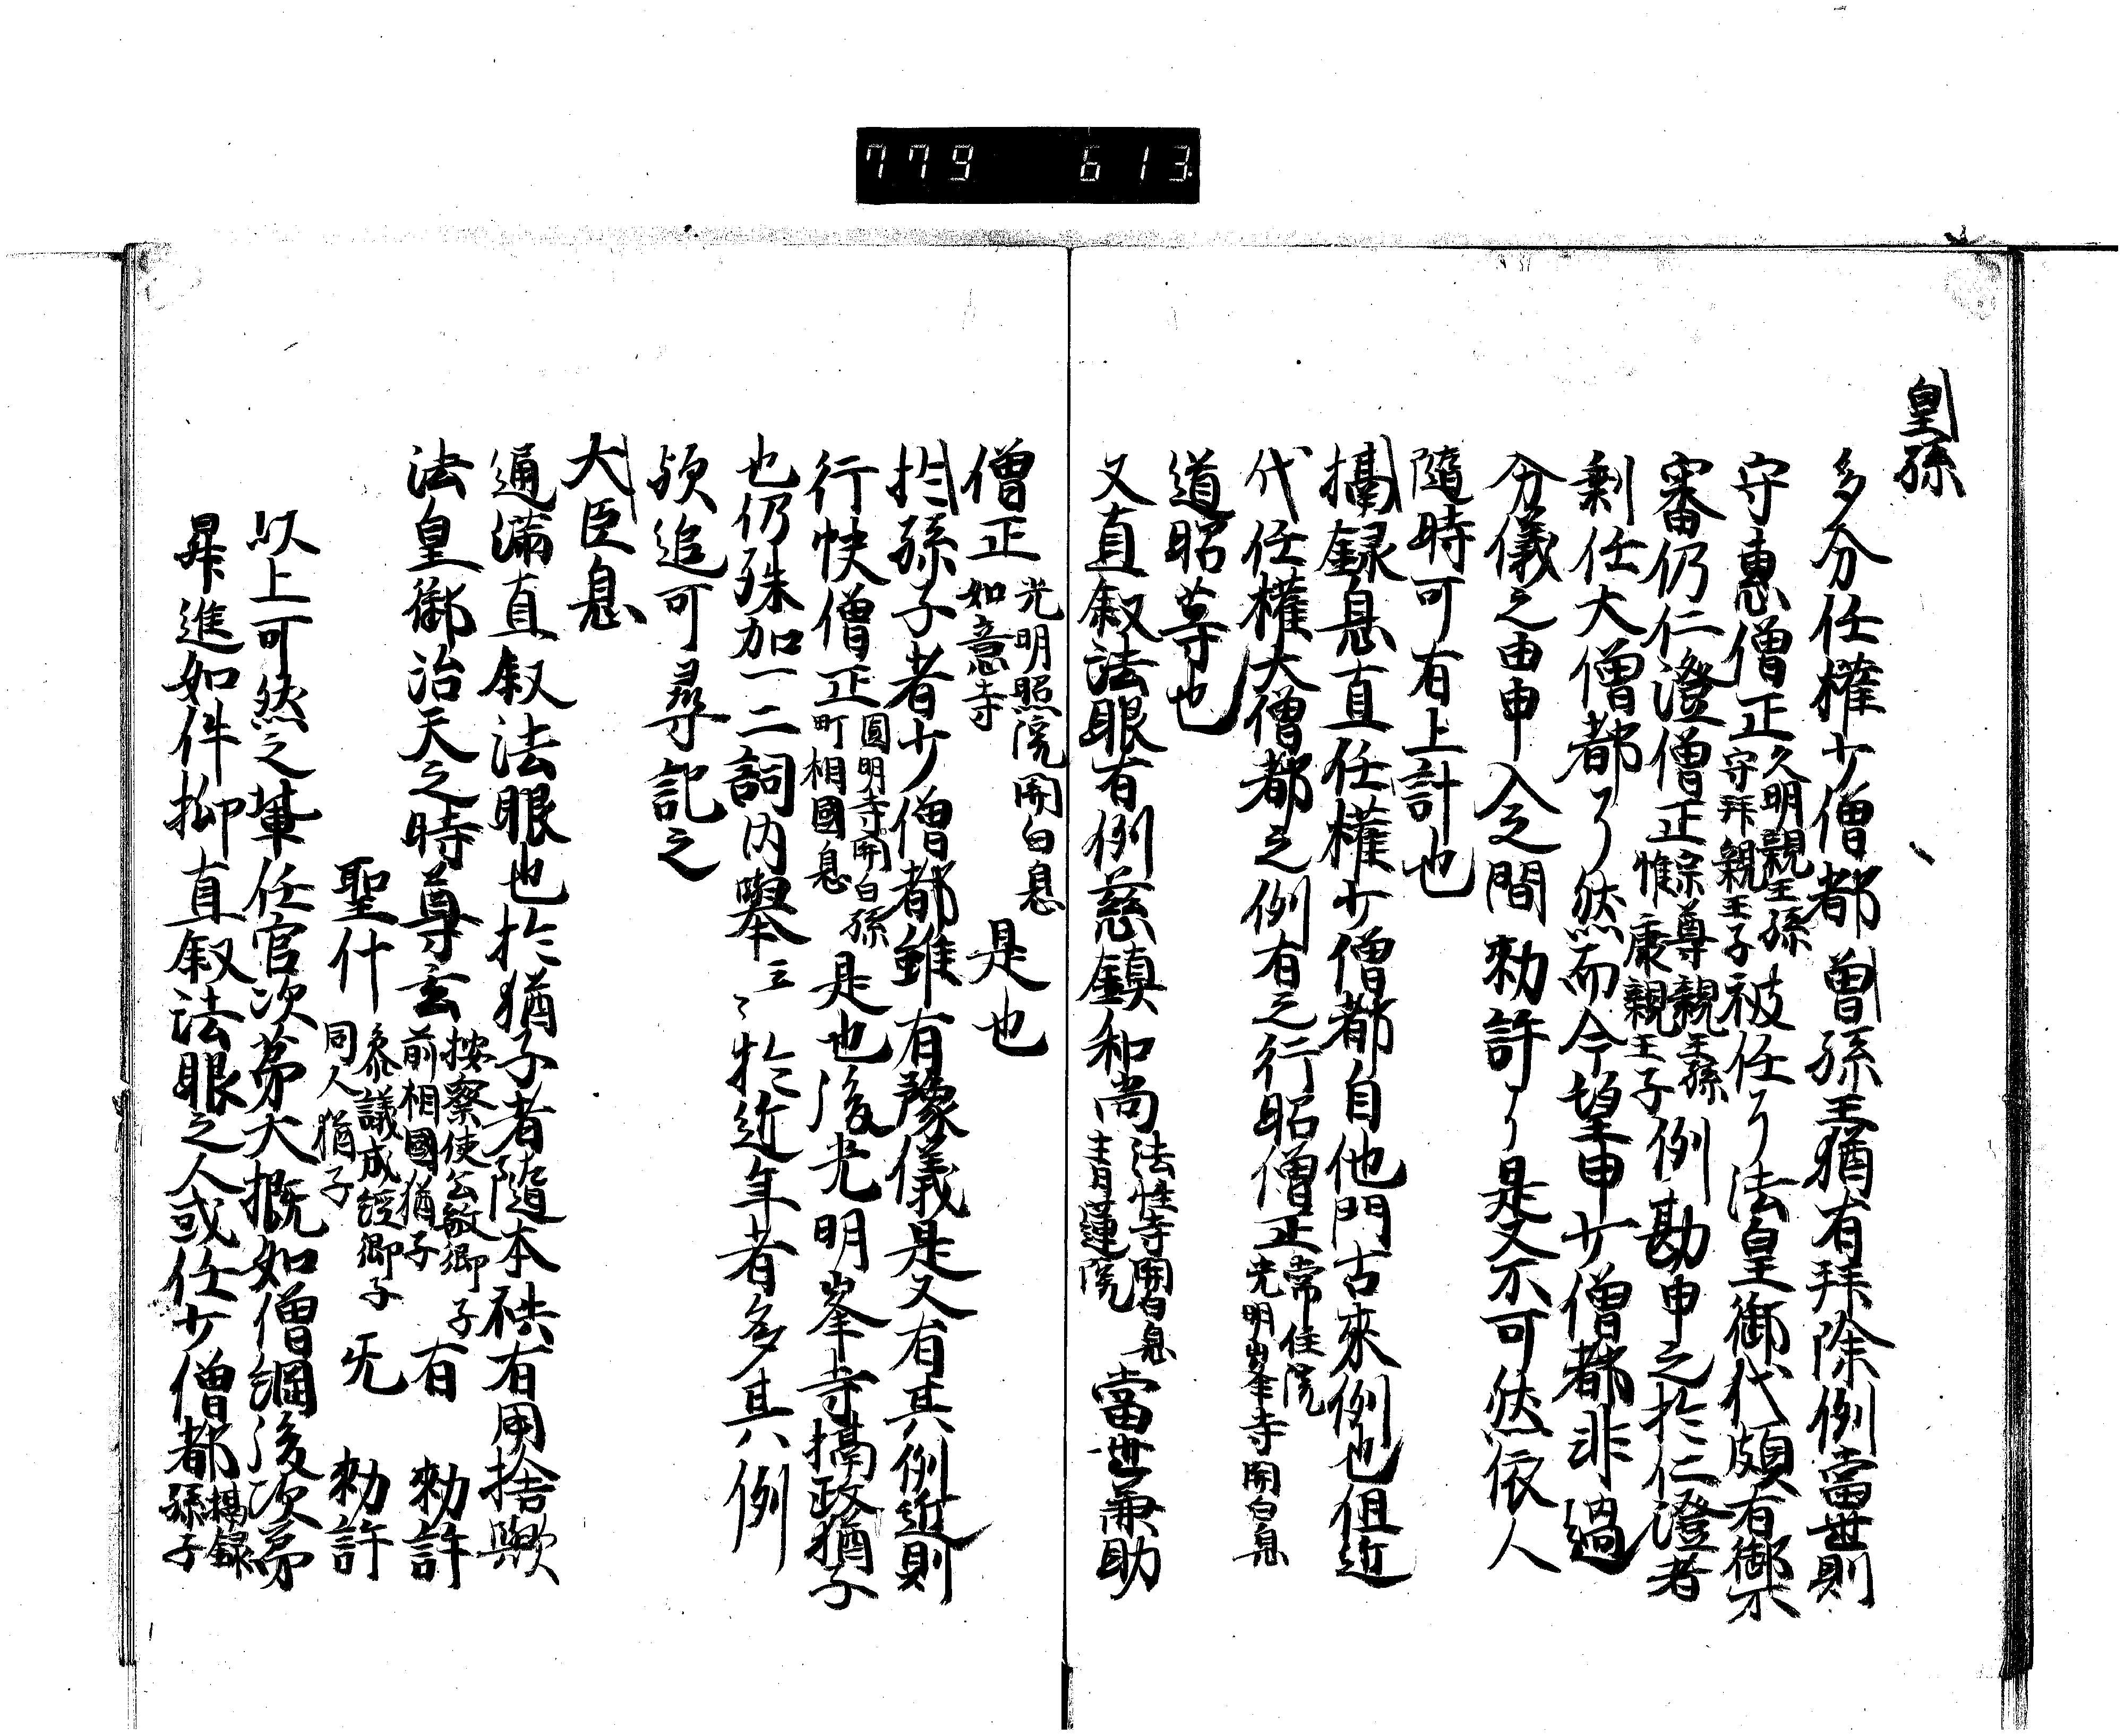 779 613
皇孫
多分任權少僧都曽孫王猶有拜除例當世則
守惠僧正久明親王孫守拜親王子被任了法皇御代頗有御不
審仍仁澄僧正宗尊親王孫惟康親王子例勘申之於仁澄者
剰任大僧都了然而今望申少僧都非過
分儀之由申入之間勅許了是又不可然依人
隨時可有上計也
攝録息直任權少僧都自他門古來例也但近
代任權大僧都之例有之行昭僧正常住院光明峯寺関白息
道昭等也
又直叙法眼有例慈鎮和尚法性寺関白息青蓮院當世兼助
僧正光明照院関白息如意寺是也
於孫子者少僧都雖有豫儀是又有其例近則
行快僧正圓明寺関白孫町相國息是也後光明峯寺攝政猶子
也仍殊加一二詞内擧云々於近年者多其例
欤追可尋記之
大臣息
通満直叙法眼也於猶子者隨本秩有用捨歟
法皇御治天之時尊玄按察使公敏卿子前相國猶子有勅許
聖什参議成經卿子同人猶子旡勅許
以上可然之輩任官次第大概如僧綱後次第
昇進如件抑直叙法眼之人或任少僧都攝録孫子